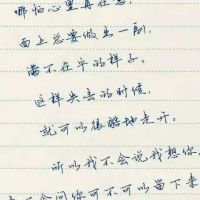 哪怕心里再在意,
面上总要做出一副,
满不在乎的样子。
这样失去的时候,
就可以很酷地走开。
所以我不会说我想你,
不会问你可不可以留下来